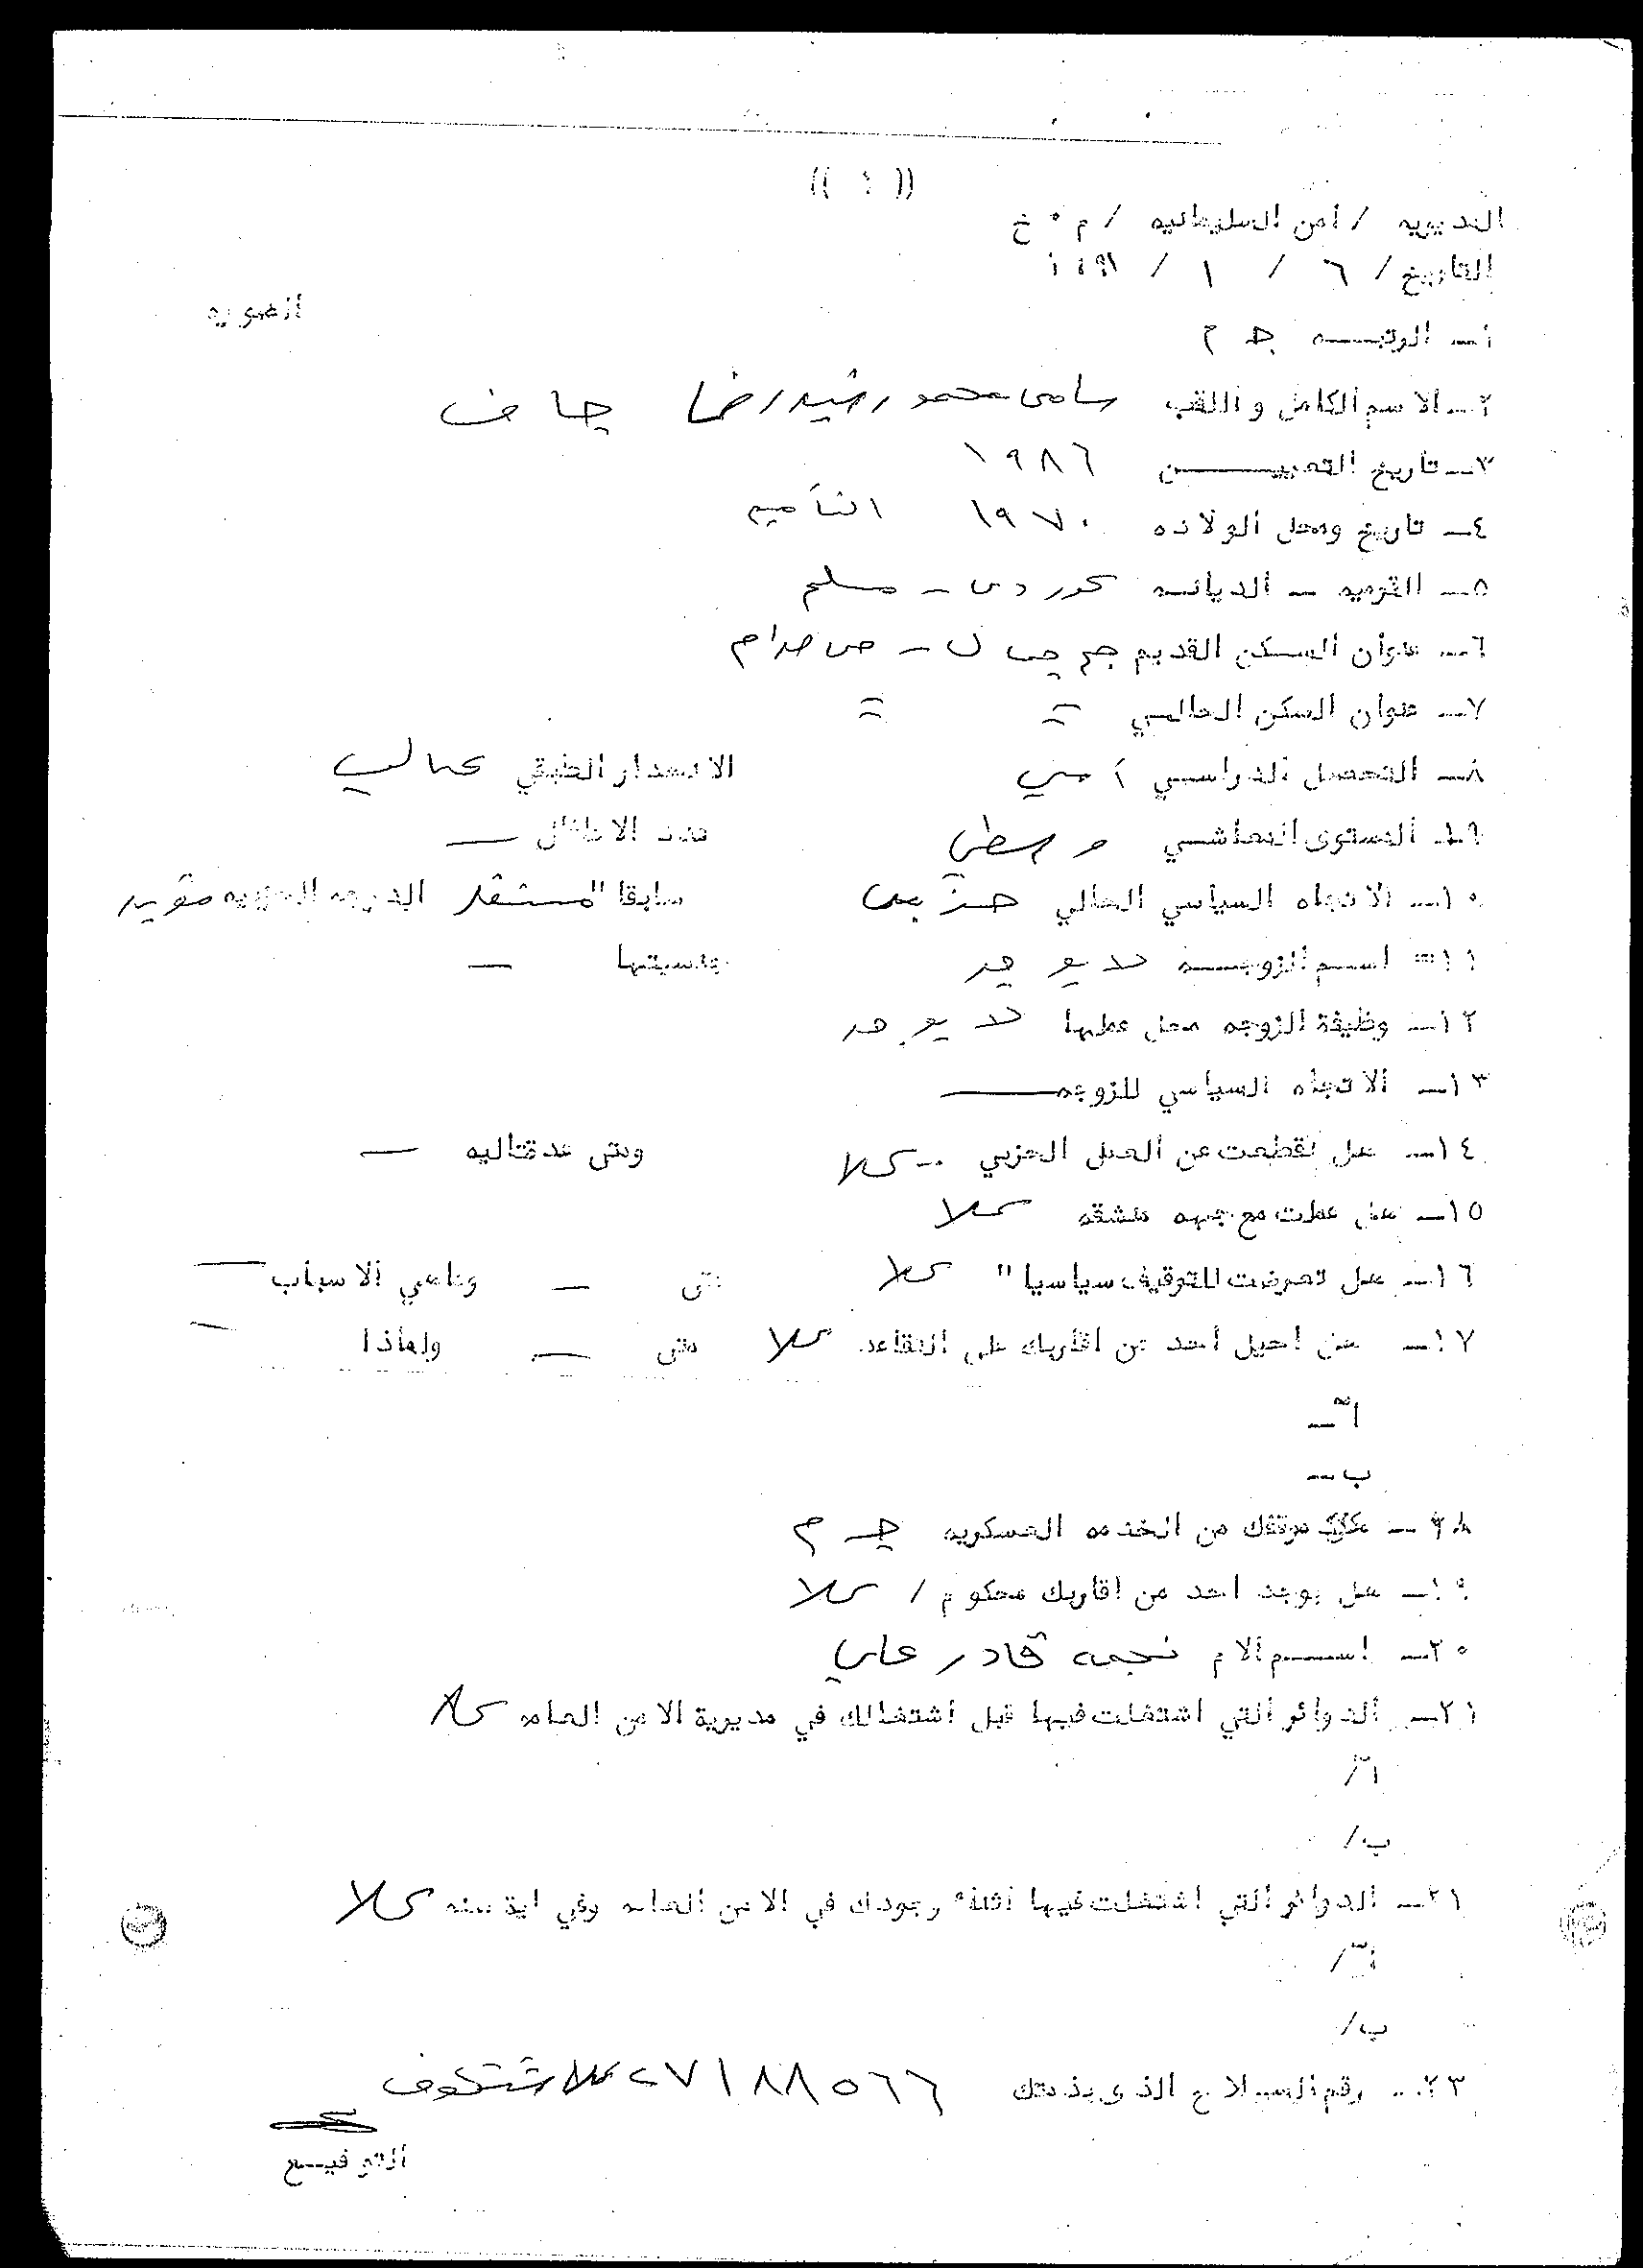 (( ١ ))
المديريه / أمن السليمانيه / م٠خ
التاريخ / ٦ / ١ / ١٩٩١
الصوره
١ــ الرتبـــه جـ م
٢ــ الاسم الكامل واللقب سامى محمود رشيد رضا جاف
٣ــ تاريخ التعييـــن ١٩٨٦
٤ــ تاريخ ومحل الولاده ١٩٧٠ التأميم
٥ــ القوميه ــ الديانــه كوردى ــ مسلم
٦ــ عنوان السـكن القديم جم جمال ــ حى صدام
٧ــ عنوان السكن الحالـي = =
٨ــ التحصيل الدراسـي أمي الانحدار الطبقي عمالي
٩ــ المستوى المعاشـي وسطي عدد الاطفال ــ
١٠ــ الاتجاه السياسي الحالي حزبى سابقا" مستقل الدرجه الحزبيه مؤيد
١١= اســم الزوجـــه لا يوجد جنسيتها ــ
١٢ــ وظيفة الزوجه محل عملها لا يوجد
١٣ــ الاتجاه السياسي للزوجه ــ
١٤ــ هل انقطعت عن العمل الحزبي ــ كلا ومتى ــ
١٥ــ هل عملت مع جهه منشقه كلا
١٦ــ هل تعرضت للتوقيف سياسيا" كلا متى ــ وماهي الاسباب ــ
١٧ــ هل احيل أحد من اقاربك على التقاعد كلا متى ــ ولماذا ــ
أ ــ
ب ــ
١٨ــ موقفك من الخدمه العسكريه جـ م
١٩ــ هل يوجد احد من اقاربك محكوم / كلا
٢٠ــ اســـم الام نجمه قادر علي
٢١ــ الدوائر التي اشتغلت فيها قبل اشتغالك في مديرية الامن العامه كلا
أ/
ب/
٢١ــ الدوائر التي اشتغلت فيها اثناء وجودك في الامن العامه وفي اية سنه كلا
أ/
ب/
٢٣ــ رقم السلاح الذى بذمتك ٢٧١٨٨٥٦٦ كلاشنكوف
التوقيــع